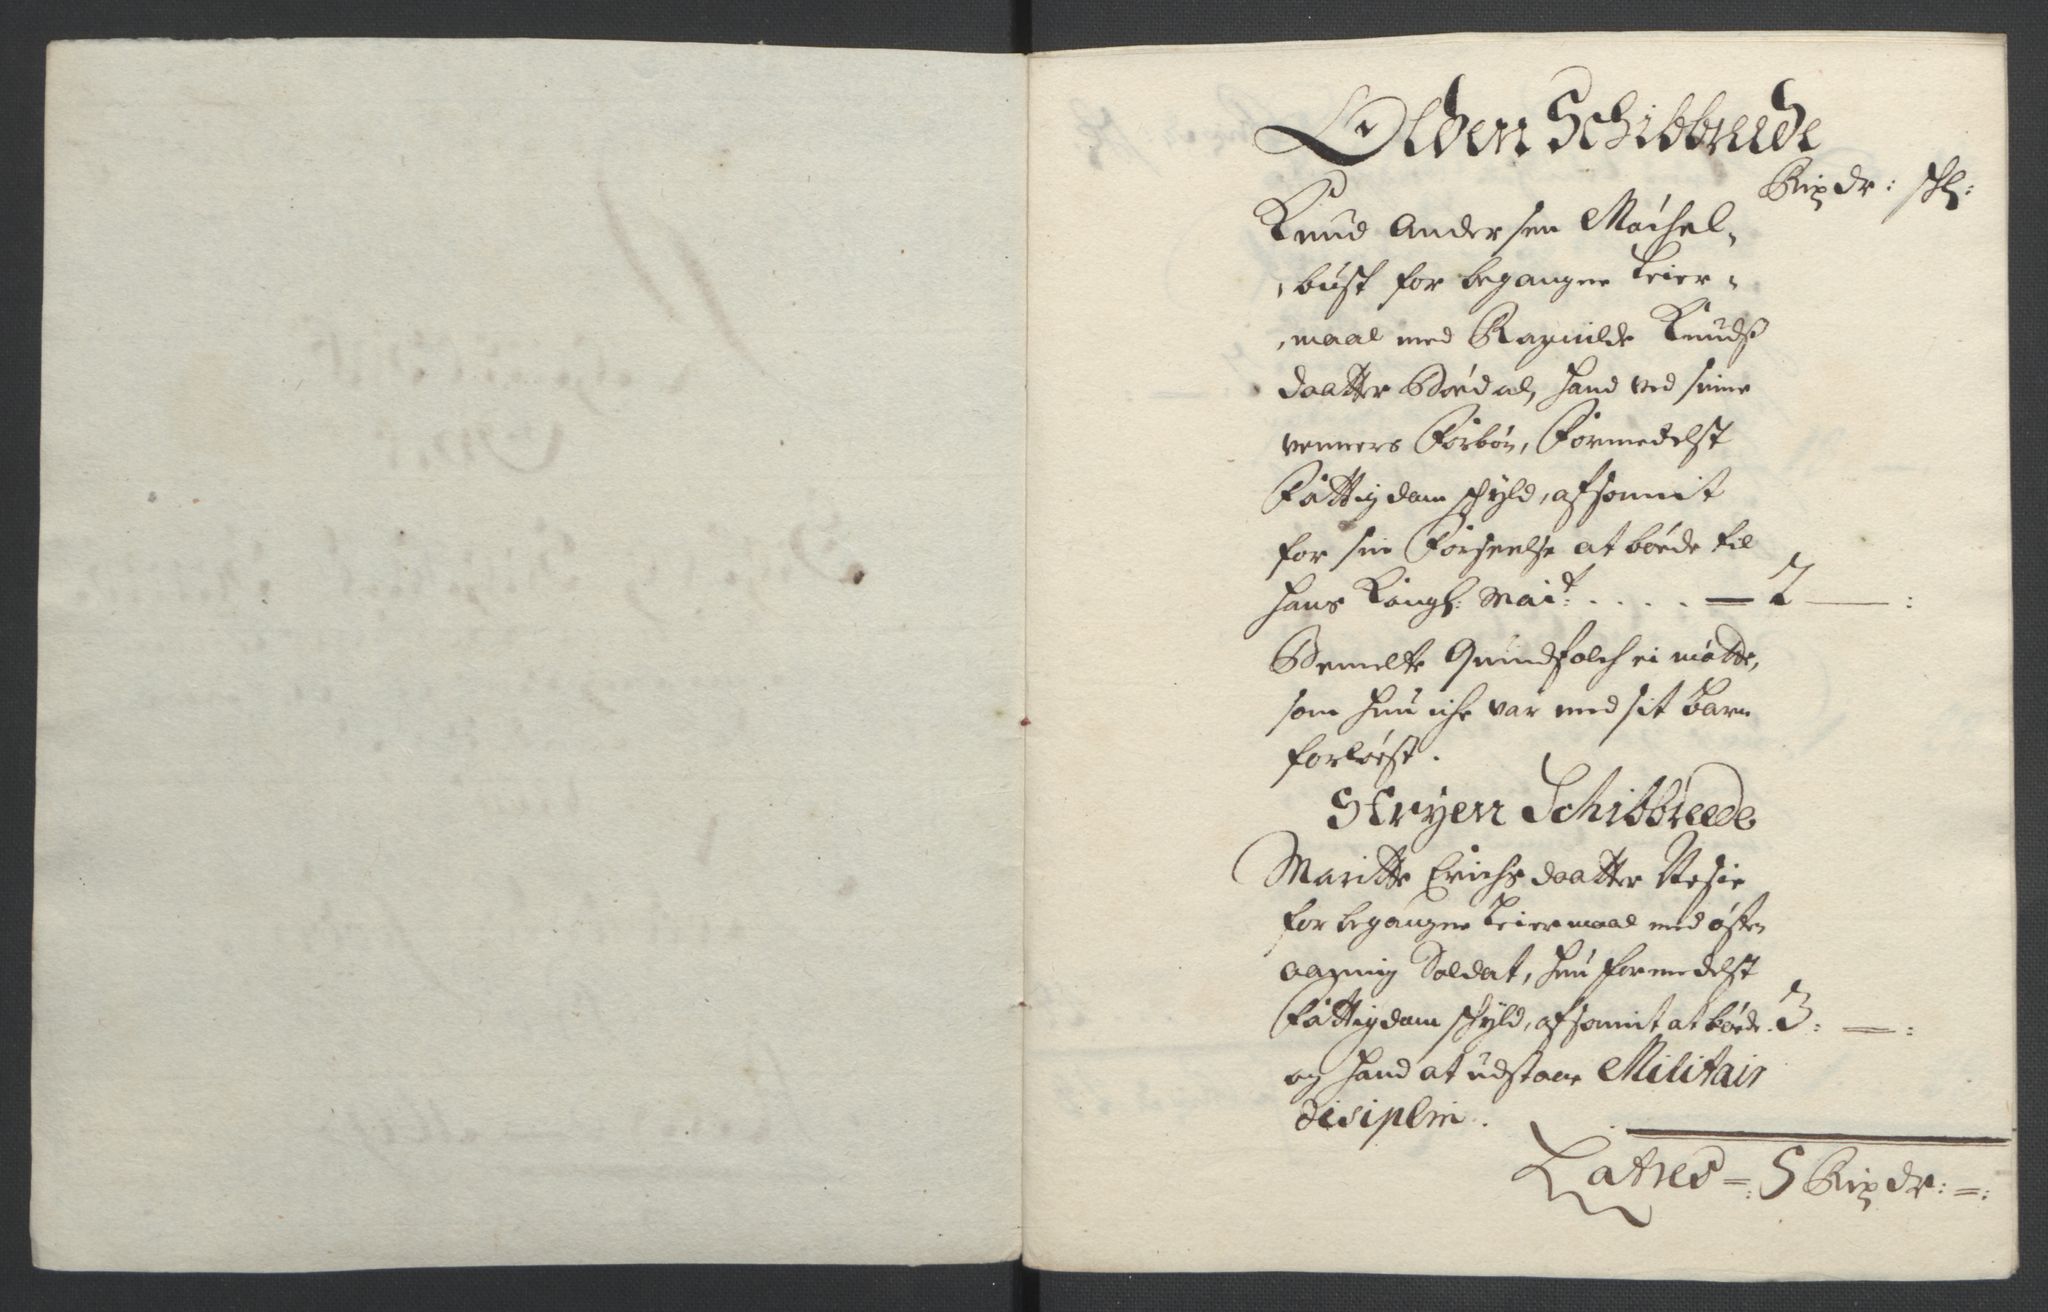 Olden Schibbrede
Rixdr: sk:
Knud Andersen Møchel-
bust for begangne Leier-
maal med Ragnilde Knuds
daatter Bødal, hand ved sine
venners Forbøn, Formedelst
Fattigdom skyld, afsonnit
for sin Forseelse at bøde til
hans Kongl: Mait: . . . . — 2 — :
Bemelte Quindfolch ei møtte,
som hun iche var med sit barn
forløest.
Stryen Schibbrede
Maritte Erichsdaatter Nesie
for begangne Leiermaal med østen
Soldat, hun formedelst
Fattigdom skyld, afsonnit at bøde . 3 : — :
og hand at udstaae Militair
disiplin.
Latus =: 5 Rixdr: =: